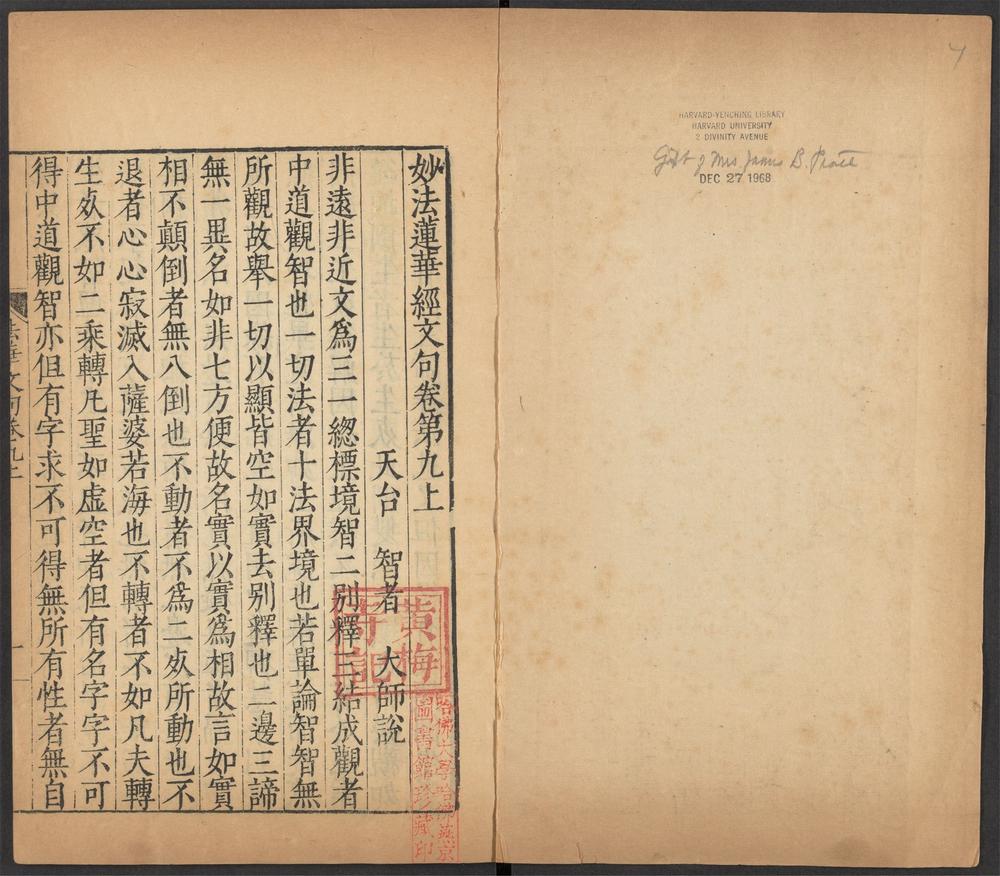 HARVARD-YENCHING LIBRARY
HARVARD UNIVERSITY
2 DIVINITY AVENUE
Gift of Mrs James B. Pratt
DEC 27 1968
妙法蓮華經文句卷第九上
天台 智者 大師說
非遠非近文爲三一總標境智二別釋三結成觀者
中道觀智也一切法者十法界境也若單論智智無
所觀故舉一切以顯皆空如實去别釋也二邊三諦
無一異名如非七方便故名實以實爲相故言如實
相不顛倒者無八倒也不動者不爲二乑所動也不
退者心心寂滅入薩婆若海也不轉者不如凡夫轉
生乑不如二乘轉凡聖如虛空者但有名字字不可
得中道觀智亦但有字求不可得無所有性者無自
法華文句卷九上
一
黃梅
哈佛大學哈佛燕京
圖書館珍藏印